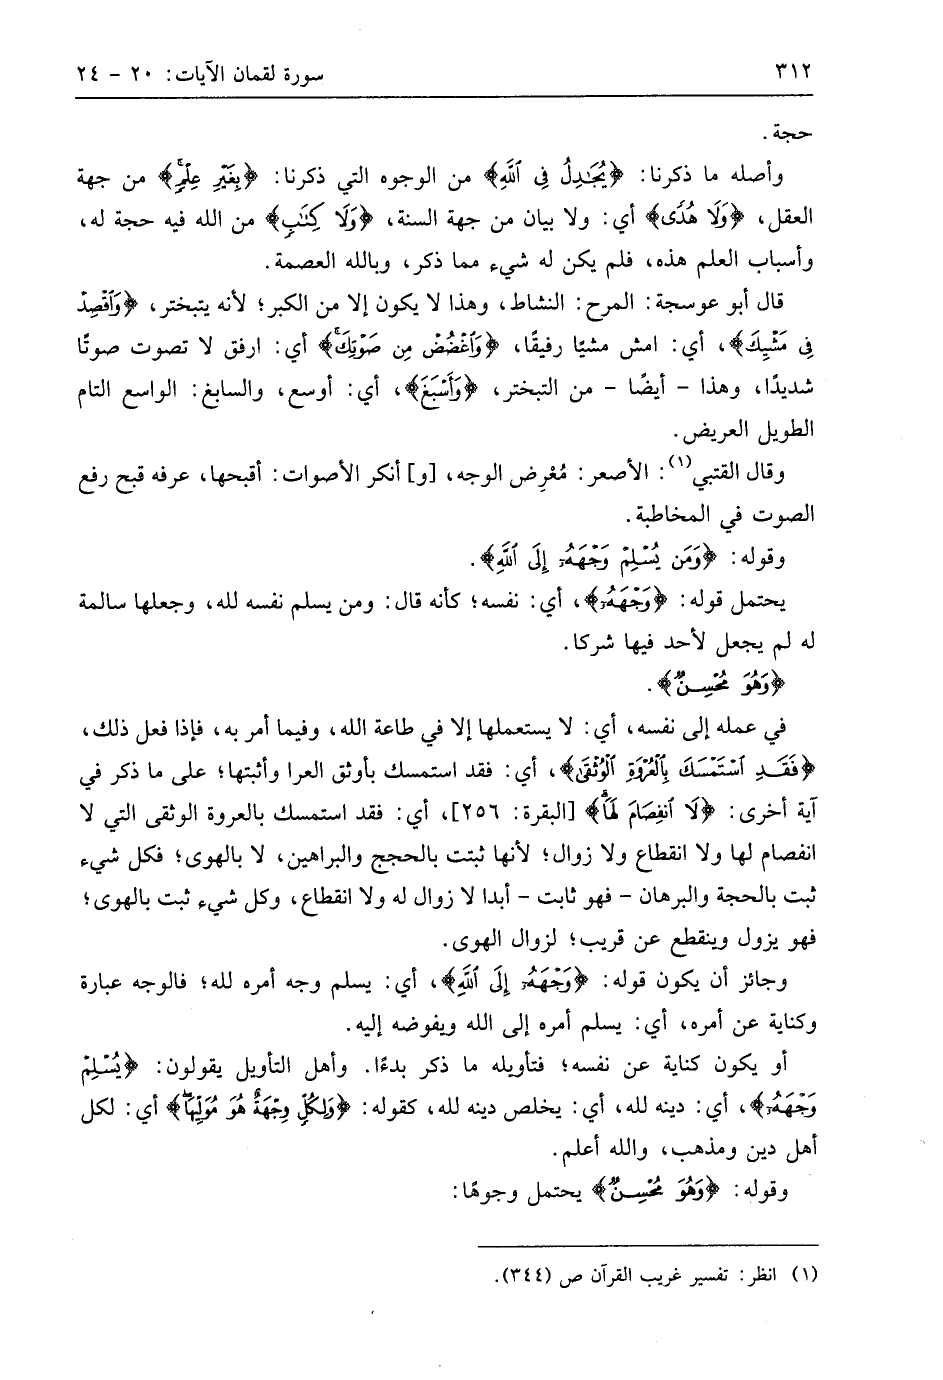 ٣١٢ سورة لقمان الآيات: ٢٠ - ٢٤
حجة.
وأصله ما ذكرنا: ﴿يُجَٰدِلُ فِي ٱللَّهِ﴾ من الوجوه التي ذكرنا: ﴿بِغَيْرِ عِلْمٖ﴾ من جهة
العقل، ﴿وَلَا هُدٗى﴾ أي: ولا بيان من جهة السنة، ﴿وَلَا كِتَٰبٖ﴾ من الله فيه حجة له،
وأسباب العلم هذه، فلم يكن له شيء مما ذكر، وبالله العصمة.
قال أبو عوسجة: المرح: النشاط، وهذا لا يكون إلا من الكبر؛ لأنه يتبختر، ﴿وَٱقْصِدْ
فِي مَشْيِكَ﴾، أي: امش مشيًا رفيقًا، ﴿وَٱغْضُضْ مِن صَوْتِكَۚ﴾ أي: ارفق لا تصوت صوتًا
شديدًا، وهذا - أيضًا - من التبختر، ﴿وَأَسْبَغَ﴾، أي: أوسع، والسابغ: الواسع التام
الطويل العريض.
وقال القتبي(١): الأصعر: مُعْرِض الوجه، [و] أنكر الأصوات: أقبحها، عرفه قبح رفع
الصوت في المخاطبة.
وقوله: ﴿وَمَن يُسْلِمْ وَجْهَهُۥٓ إِلَى ٱللَّهِ﴾.
يحتمل قوله: ﴿وَجْهَهُۥٓ﴾، أي: نفسه؛ كأنه قال: ومن يسلم نفسه لله، وجعلها سالمة
له لم يجعل لأحد فيها شركا.
﴿وَهُوَ مُحْسِنٞ﴾.
في عمله إلى نفسه، أي: لا يستعملها إلا في طاعة الله، وفيما أمر به، فإذا فعل ذلك،
﴿فَقَدِ ٱسْتَمْسَكَ بِٱلْعُرْوَةِ ٱلْوُثْقَىٰ﴾، أي: فقد استمسك بأوثق العرا وأثبتها؛ على ما ذكر في
آية أخرى: ﴿لَا ٱنفِصَامَ لَهَاۗ﴾ [البقرة: ٢٥٦]، أي: فقد استمسك بالعروة الوثقى التي لا
انفصام لها ولا انقطاع ولا زوال؛ لأنها ثبتت بالحجج والبراهين، لا بالهوى؛ فكل شيء
ثبت بالحجة والبرهان - فهو ثابت - أبدا لا زوال له ولا انقطاع، وكل شيء ثبت بالهوى؛
فهو يزول وينقطع عن قريب؛ لزوال الهوى.
وجائز أن يكون قوله: ﴿وَجْهَهُۥٓ إِلَى ٱللَّهِ﴾، أي: يسلم وجه أمره لله؛ فالوجه عبارة
وكناية عن أمره، أي: يسلم أمره إلى الله ويفوضه إليه.
أو يكون كناية عن نفسه؛ فتأويله ما ذكر بدءًا. وأهل التأويل يقولون: ﴿يُسْلِمْ
وَجْهَهُۥٓ﴾، أي: دينه لله، أي: يخلص دينه لله، كقوله: ﴿وَلِكُلّٖ وِجْهَةٌ هُوَ مُوَلِّيهَاۖ﴾ أي: لكل
أهل دين ومذهب، والله أعلم.
وقوله: ﴿وَهُوَ مُحْسِنٞ﴾ يحتمل وجوهًا:
(١) انظر: تفسير غريب القرآن ص (٣٤٤).